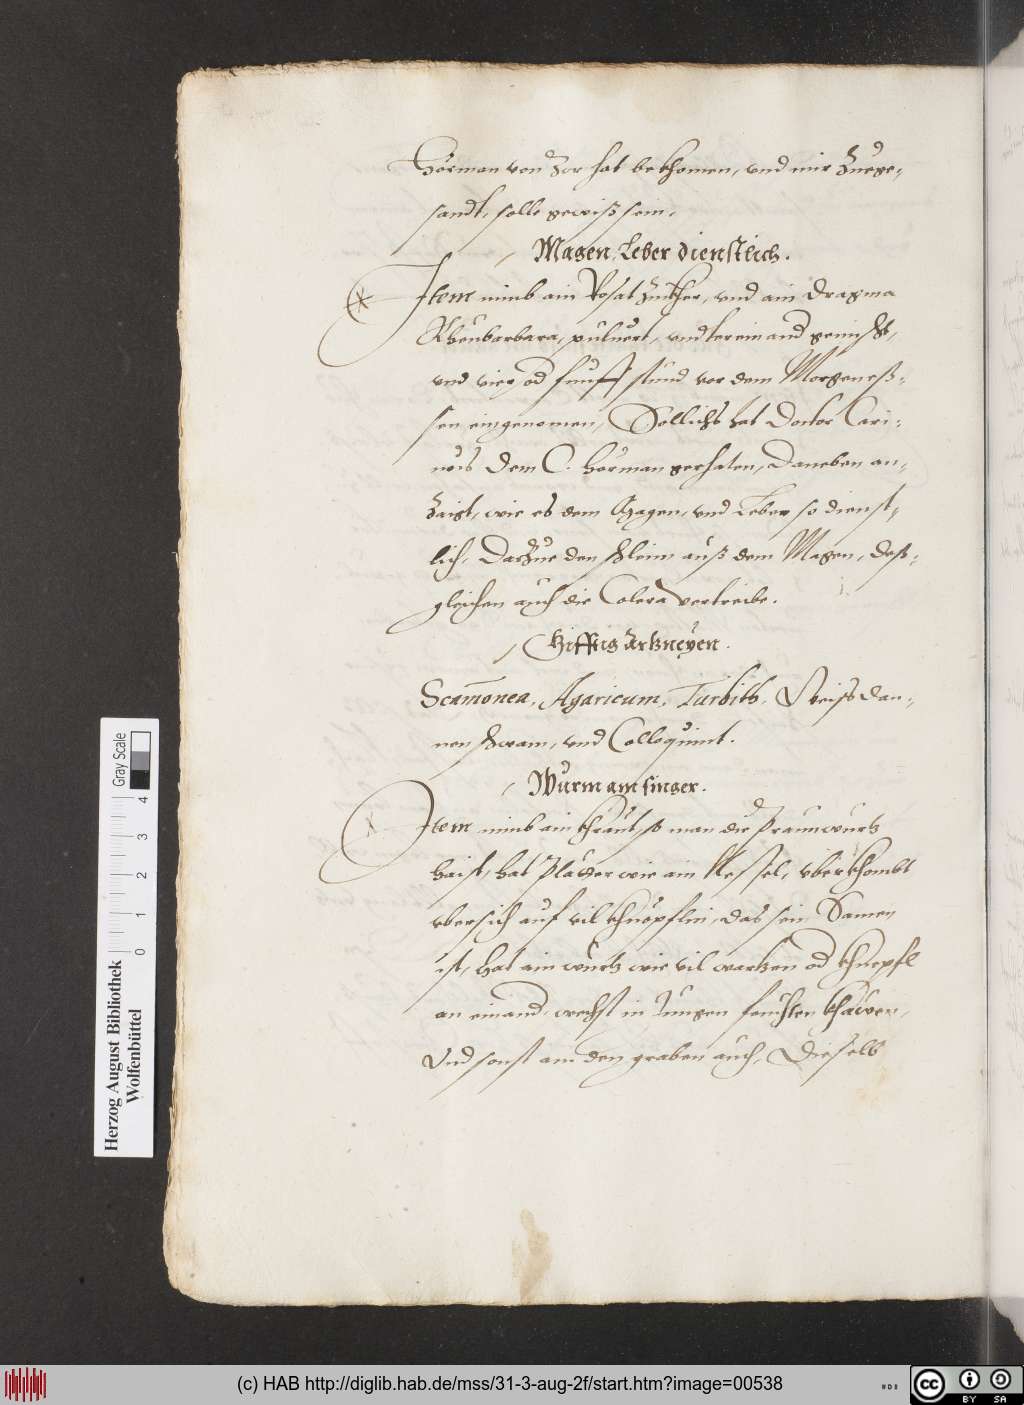 Hörman von Zor hat bekhomen, und mir Zuege-
sandt, solle gewiß sein.
Magen, Leber dienstlich.
Item nimb ain Rosat Zukher, und ain dragma
Rheubarbara, puluert, undterainand gemischt,
und vier od funff stund vor dem Morgeness-
sen eingenomen, Sollichs hat Doctor Cari-
nus dem C. Hörman gerhaten, Daneben an-
zaigt, wie es dem Magen, und Leber so dienst-
lich, Darzue den schleim auß dem Magen, deß-
gleichen auch die Colera vertreibe.
Gifftig Artzneyen.
Scamonea, Agaricum, Turbith, Weiss dan-
nen schwam, und Colloquint.
Wurm am finger.
Item nimb ain khraut, so man die Praunwurtz
haist, hat Pläter wie ain Nessel, uberkhombt
ubersich auf vil khnöpflin, das sein Samen
ist, hat ain wurtz wie vil wartzen od khnepfl
an einand, wechst in Jungen feuchten
Und sonst an den graben auch, Dieselb
Herzog August Bibliothek
Wolfenbüttel
Gray Scale
0 1 2 3 4
(c) HAB http://diglib.hab.de/mss/31-3-aug-2f/start.htm?image=00538
cc BY SA